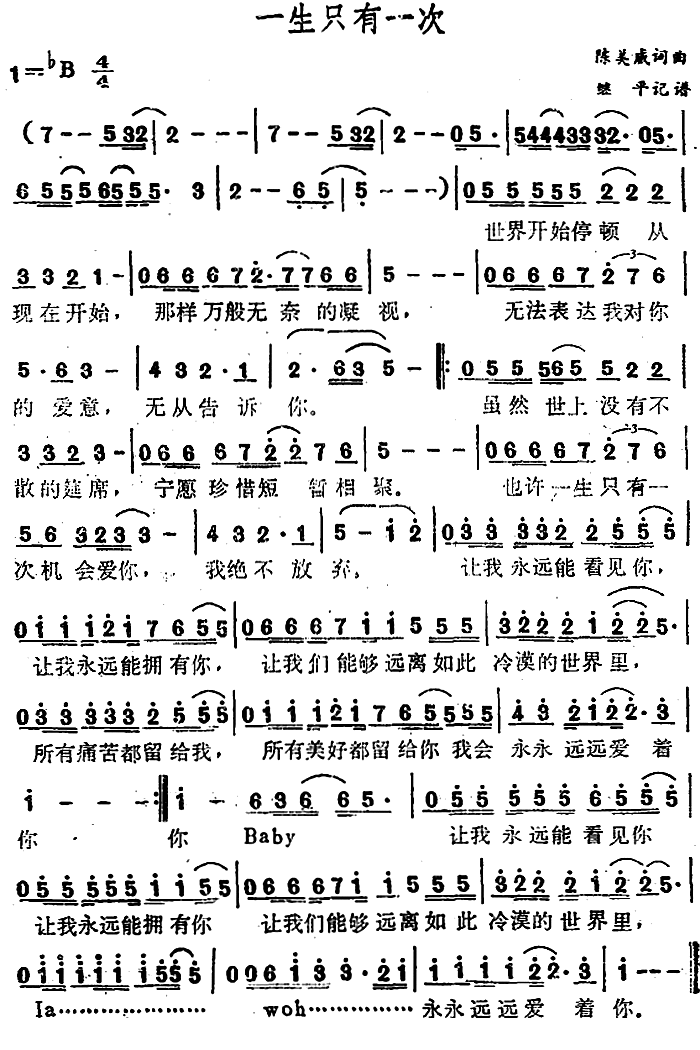 一生只有一次
1=♭B 4/4
陈美威词曲
继 平记谱
(7 - - 532 | 2 - - - | 7 - - 532 | 2 - - 05· | 5444333 32· 05· |
6 5556555· 3 | 2 - - 65 | 5 - - -) | 055 555 222 |
世界开始停顿 从
3321 - | 066 667 2·7766 | 5 - - - | 066 667 276 |
现在开始， 那样万般无奈的凝视， 无法表达我对你
5·63 - | 432·1 | 2·635 - |: 055 565 522 |
的 爱意， 无从告诉你。 虽然 世上没有不
3323 - | 066 667 2276 | 5 - - - | 066 667 276 |
散的筵席， 宁愿珍惜短 暂相聚。 也许一生只有一
56 3233 - | 432·1 | 5 - 12 | 033 332 2555 |
次机会爱你， 我绝不放弃。 让我永远能看见你，
011 121 7655 | 066 671 1555 | 3222 1225· |
让我永远能拥有你， 让我们能够远离如此 冷漠的世界里，
033 333 2555 | 011 121 765555 | 43 2122·3 |
所有痛苦都留给我， 所有美好都留给你我会 永永远远爱着
1 - - - :| 1 - 636 65· | 055 555 6555 |
你 你 Baby 让我永远能看见你
055 555 1155 | 066 671 1555 | 3222 2125· |
让我永远能拥有你 让我们能够远离如此 冷漠的世界里，
011 111 1555 | 006 13 3·21 | 1111 22·3 | 1 - - - |
Ia………………… woh…………… 永永远远爱着你。